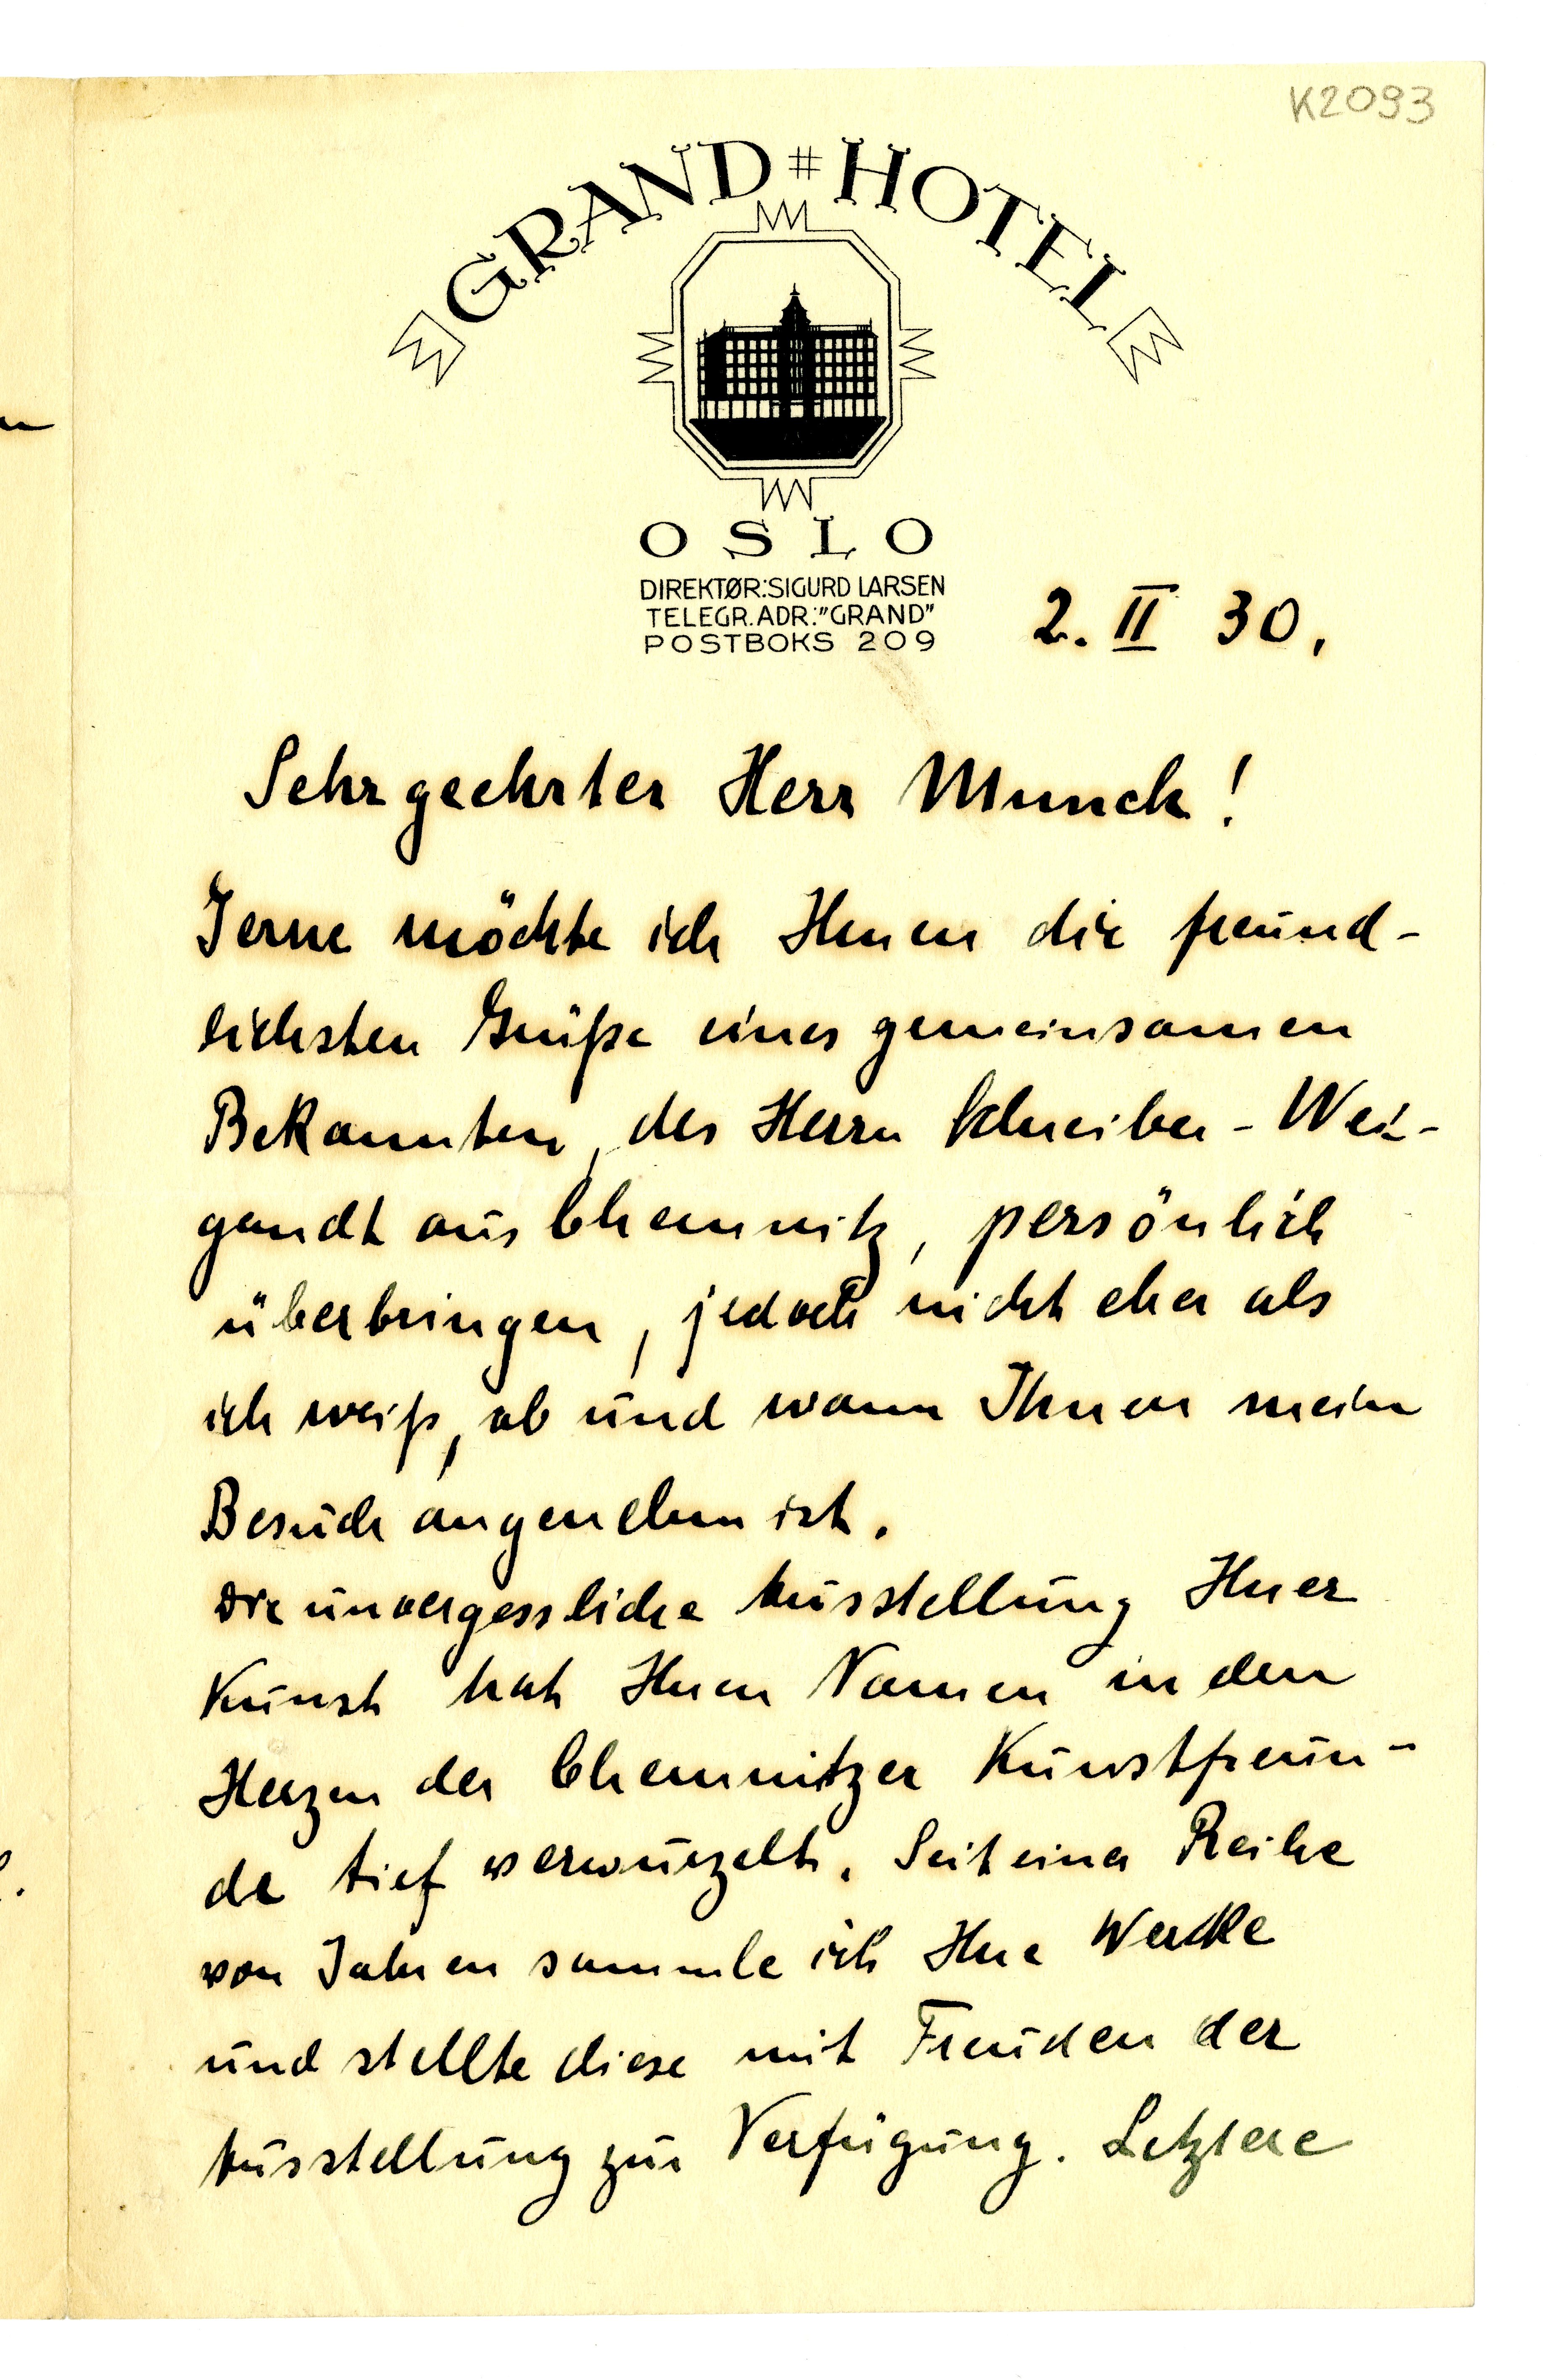 K2093
GRAND HOTEL
OSLO
DIREKTØR: SIGURD LARSEN
TELEGR. ADR.: "GRAND"
POSTBOKS 209
2. II 30.
Sehr geehrter Herr Munch!
Gerne möchte ich Ihnen die freund-
lichsten Grüße eines gemeinsamen
Bekannten, des Herrn Schreiber-Wei-
gandt aus Chemnitz, persönlich
überbringen, jedoch nicht eher als
ich weiß, ob und wann Ihnen mein
Besuch angenehm ist.
Die unvergessliche Ausstellung Ihrer
Kunst hat Ihren Namen in den
Herzen der Chemnitzer Kunstfreun-
de tief verwurzelt. Seit einer Reihe
von Jahren sammle ich Ihre Werke
und stellte diese mit Freuden der
Ausstellung zur Verfügung. Letztere